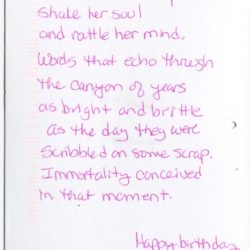 Shake her soul
and rattle her mind.
Words that echo through
the canyon of years
as bright and brittle
as the day they were
scribbled on some scrap.
Immortality conceived
in that moment.
Happy birthday